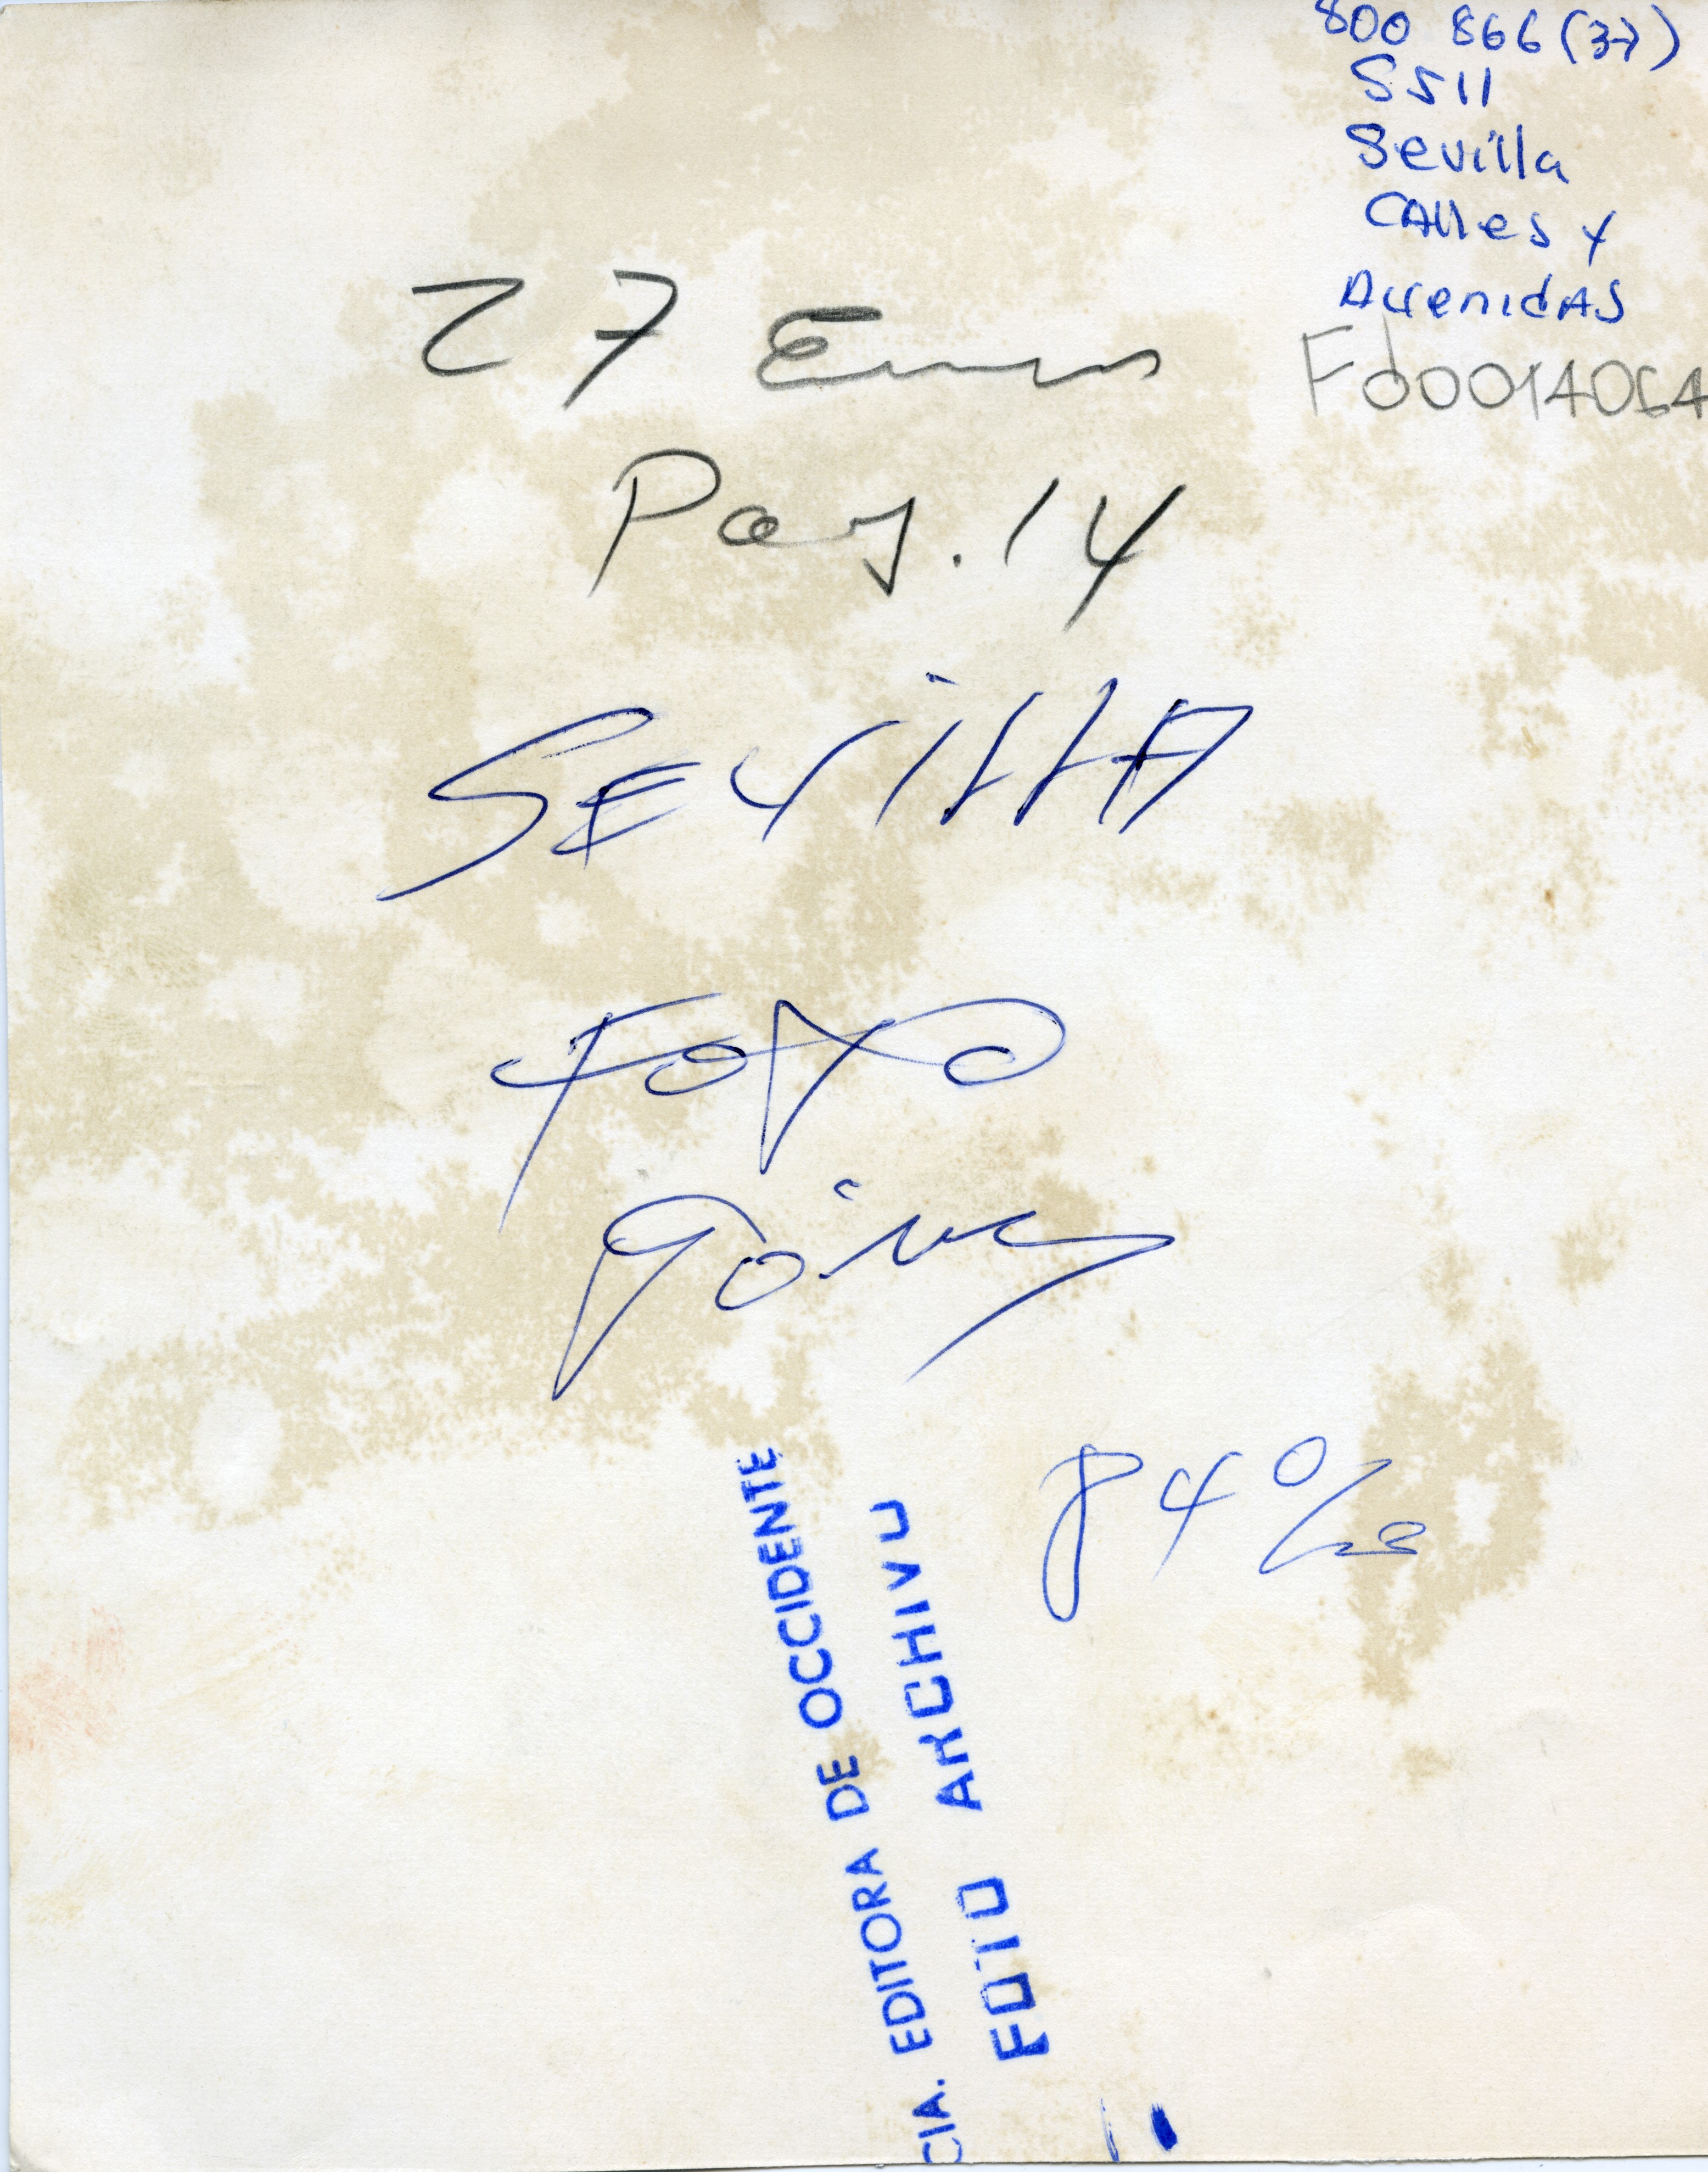 800 866 (37)
S511
Sevilla
CAlles y
AvenidAS
Fd0014064
27 Enero
Pag. 14
SEVillA
Foto
Gómez
CIA. EDITORA DE OCCIDENTE
FOTO ARCHIVO